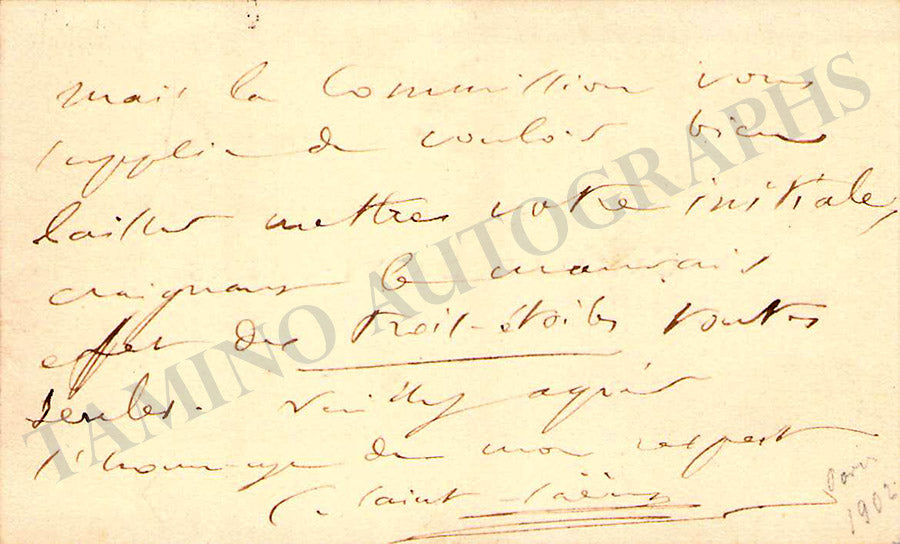 mais la Commission vous
supplie de vouloir bien
laisser mettre votre initiale,
craignant le mauvais
effet des trois-étoiles toutes
seules. Veuillez agréer
l'hommage de mon respect
C. Saint-Saëns
Paris
1902.
TAMINO AUTOGRAPHS